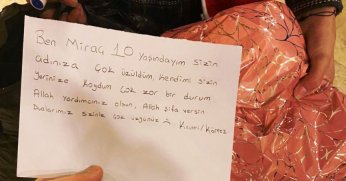 Ben Miraç 10 yaşındayım sizin
adınıza çok üzüldüm, kendimi sizin
yerinize koydum çok zor bir durum
Allah yardımcınız olsun, Allah şifa versin
Dualarımız sizinle çok üzgünüz